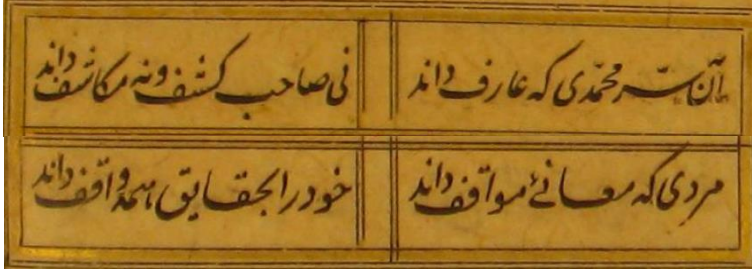 آن سرّ محمّدی که عارف داند
نی صاحب کشف و نه مکاشف داند
مردی که معانئ مواقف داند
خود را بحقایق همه واقف داند